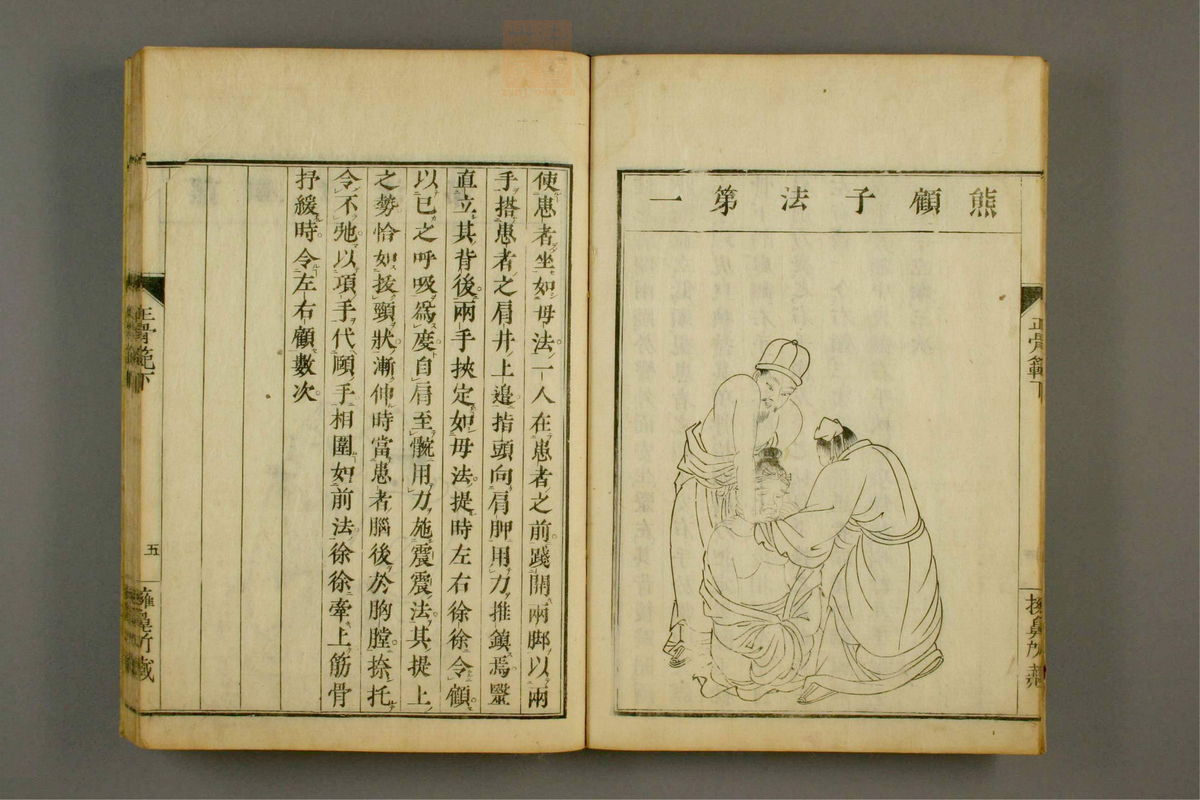 熊顧子法第一
正骨範下
使患者坐如母法一人在患者之前踐開兩脚以兩
手搭患者之肩井上邊指頭向肩胛用力推鎮焉毉
直立其背後兩手挾定如母法提時左右徐徐令顧
以已之呼吸爲度自肩至髋用力施震震法其提上
之勢恰如拔頸狀漸伸時當患者腦後於胸膛捺托
令不弛以項手代頤手相圍如前法徐徐牽上筋骨
抒緩時令左右顧數次
正骨範下
五